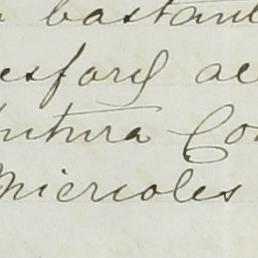 bastant
esford al
utura Co
Miercoles